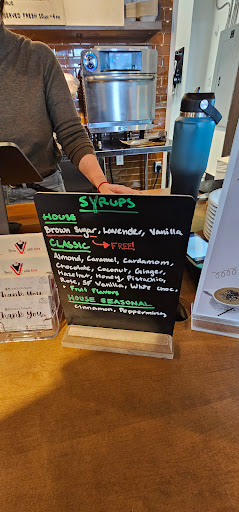 SERVED FRESH
SYRUPS
HOUSE
Brown Sugar, Lavender, Vanilla
CLASSIC → FREE!
Almond, Caramel, Cardamom,
Chocolate, Coconut, Ginger,
Hazelnut, Honey, Pistachio,
Rose, SF Vanilla, White choc.
+ Fruit Flavors
HOUSE SEASONAL
Cinnamon, Peppermint
Thank You
Thank You